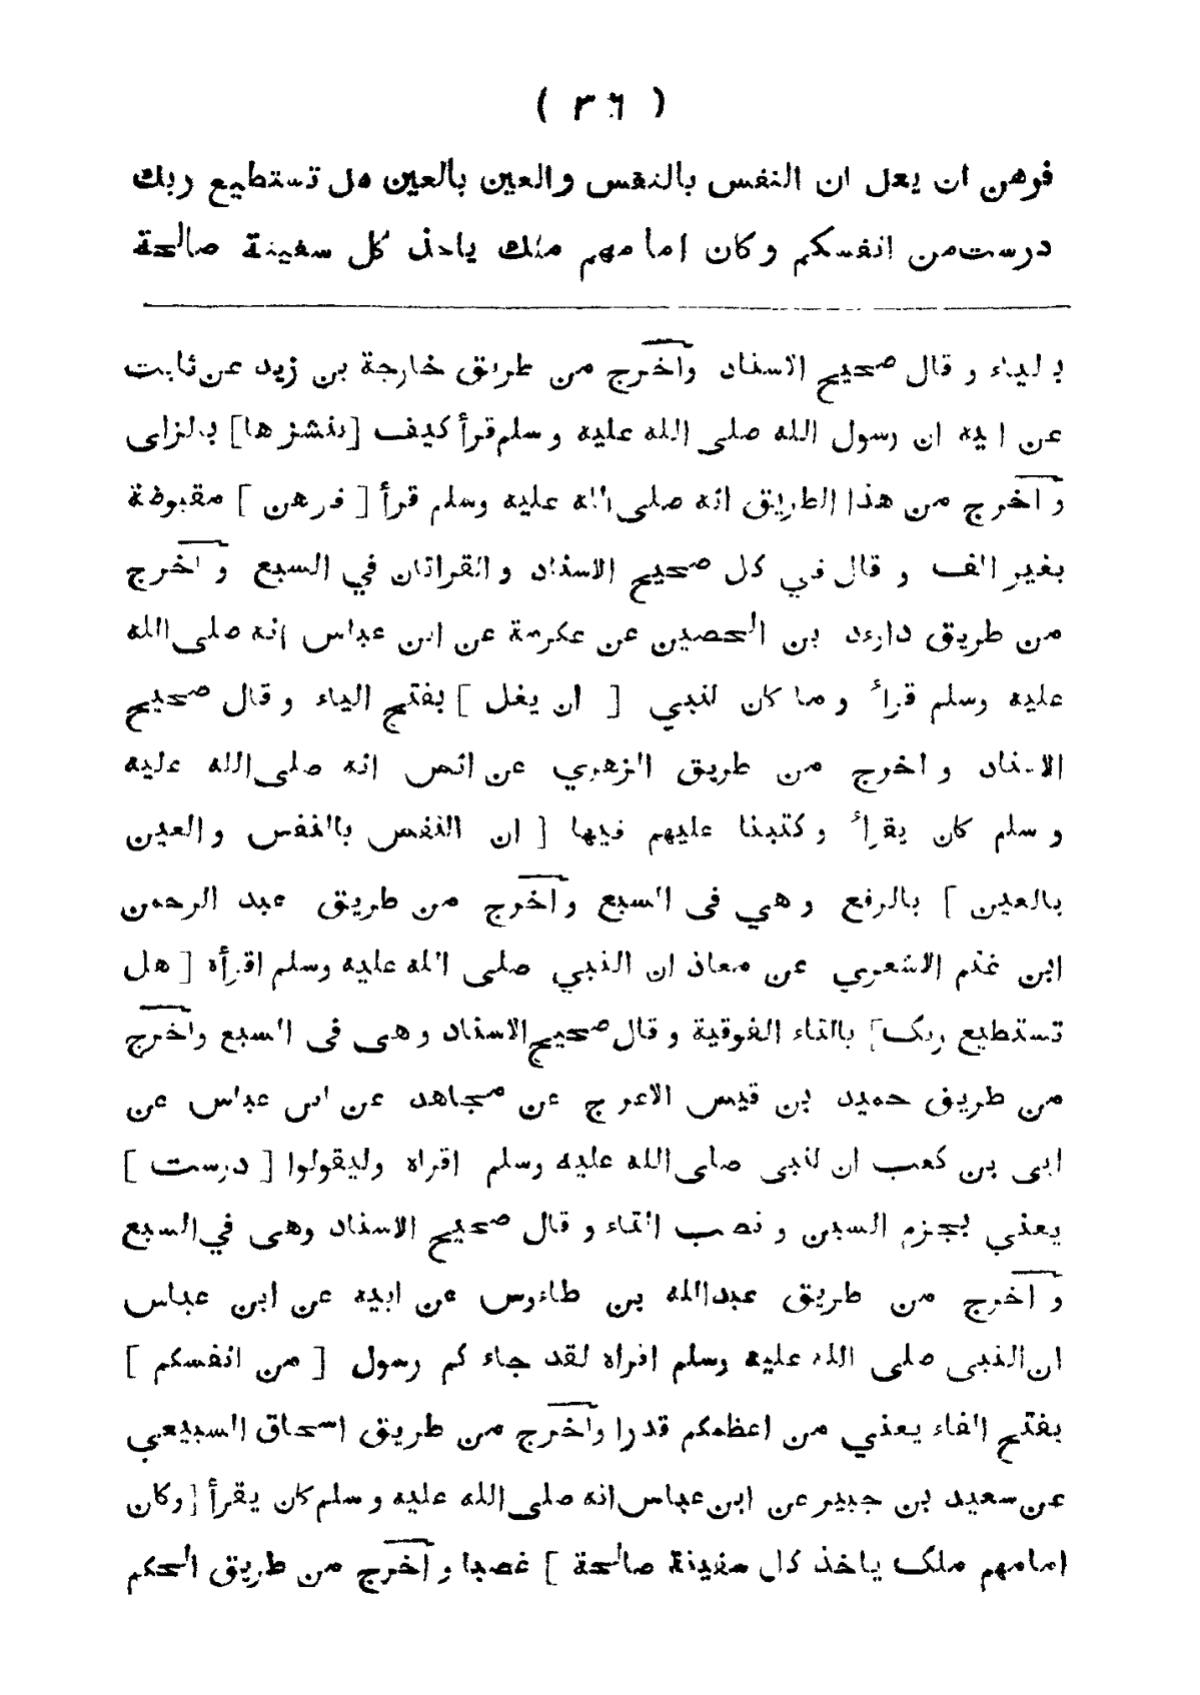 ( ٣٦ )
فرهن ان يغل ان النفس بالنفس والعين بالعين هل تستطيع ربك
درست من انفسكم وكان امامهم ملك ياخذ كل سفينة صالحة
بالياء و قال صحيح الاسناد واخرج من طريق خارجة بن زيد عن ثابت
عن ابيه ان رسول الله صلى الله عليه وسلم قرأ كيف [ننشزها] بالزاى
واخرج من هذا الطريق انه صلى الله عليه وسلم قرأ [ فرهن ] مقبوضة
بغير الف و قال في كل صحيح الاسناد والقراتان في السبع واخرج
من طريق داوٗد بن الحصين عن عكرمة عن ابن عباس انه صلى الله
عليه وسلم قرأ و ما كان لنبي [ ان يغل ] بفتح الياء وقال صحيح
الاسناد و اخرج من طريق الزهري عن انس انه صلى الله عليه
وسلم كان يقرأ وكتبنا عليهم فيها [ ان النفس بالنفس والعين
بالعين ] بالرفع وهي فى السبع واخرج من طريق عبد الرحمن
ابن غنم الاشعري عن معاذ ان النبي صلى الله عليه وسلم اقرأه [ هل
تستطيع ربك] بالتاء الفوقية وقال صحيح الاسناد وهى فى السبع واخرج
من طريق حميد بن قيس الاعرج عن مجاهد عن ابن عباس عن
ابى بن كعب ان لنبى صلى الله عليه وسلم اقراه وليقولوا [ درست ]
يعني بجزم السين و نصب التاء و قال صحيح الاسناد وهى في السبع
واخرج من طريق عبدالله بن طاوٗس عن ابيه عن ابن عباس
ان النبى صلى الله عليه وسلم اقراه لقد جاء كم رسول [ من انفسكم ]
بفتح الفاء يعني من اعظمكم قدرا واخرج من طريق اسحاق السبيعي
عن سعيد بن جبير عن ابن عباس انه صلى الله عليه وسلم كان يقرأ [وكان
امامهم ملك ياخذ كل سفينة صالحة ] غصبا واخرج من طريق الحكم